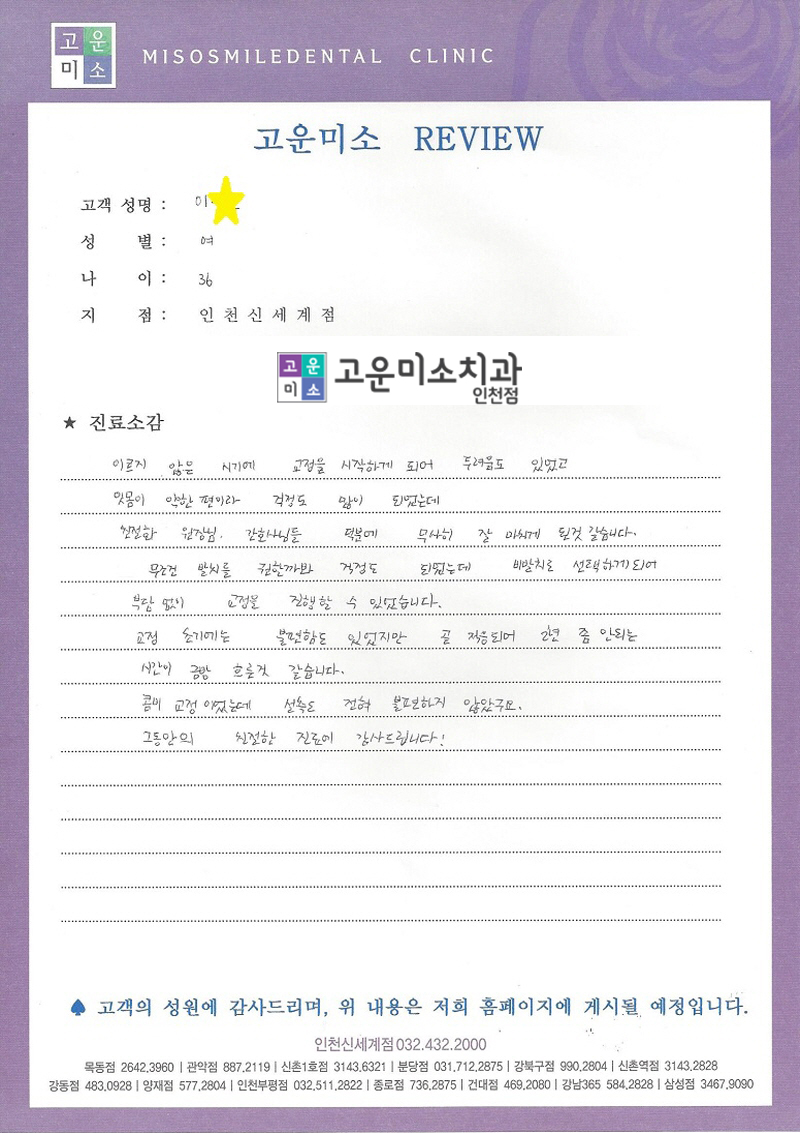 고운
미소
MISOSMILEDENTAL CLINIC
고운미소 REVIEW
고객 성명 : 이
성 별 : 여
나 이 : 36
지 점 : 인천신세계점
고운
미소
고운미소치과
인천점
★ 진료소감
이르지 않은 시기에 교정을 시작하게 되어 두려움도 있었고
잇몸이 약한 편이라 걱정도 많이 되었는데
친절한 원장님, 간호사님들 덕분에 무사히 잘 마치게 된것 같습니다.
무조건 발치를 권할까봐 걱정도 되었는데 비발치로 선택하게되어
부담 없이 교정을 진행할 수 있었습니다.
교정 초기에는 불편함도 있었지만 곧 적응되어 2년 좀 안되는
시간이 금방 흐른것 같습니다.
콤비 교정이었는데 설측도 전혀 불편하지 않았구요.
그동안의 친절한 진료에 감사드립니다!
♠ 고객의 성원에 감사드리며, 위 내용은 저희 홈페이지에 게시될 예정입니다.
인천신세계점 032.432.2000
목동점 2642,3960 | 관악점 887,2119 | 신촌1호점 3143,6321 | 분당점 031,712,2875 | 강북구점 990,2804 | 신촌역점 3143.2828
강동점 483,0928 | 양재점 577,2804 | 인천부평점 032,511,2822 | 종로점 736,2875 | 건대점 469,2080 | 강남365 584,2828 | 삼성점 3467,9090